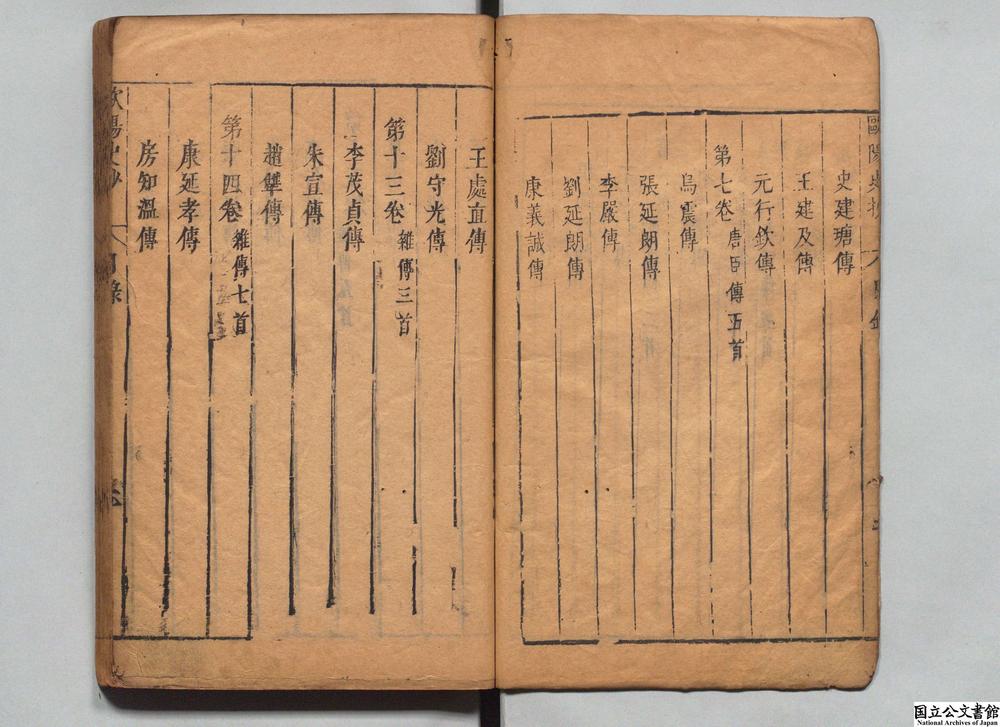 史建瑭傳
王建及傳
元行欽傳
第七卷 唐臣傳五首
烏震傳
張延朗傳
李嚴傳
劉延朗傳
康義誠傳
王處直傳
劉守光傳
第十三卷 雜傳三首
李茂貞傳
朱宣傳
趙犨傳
第十四卷 雜傳七首
康延孝傳
房知溫傳
国立公文書館
National Archives of Japan